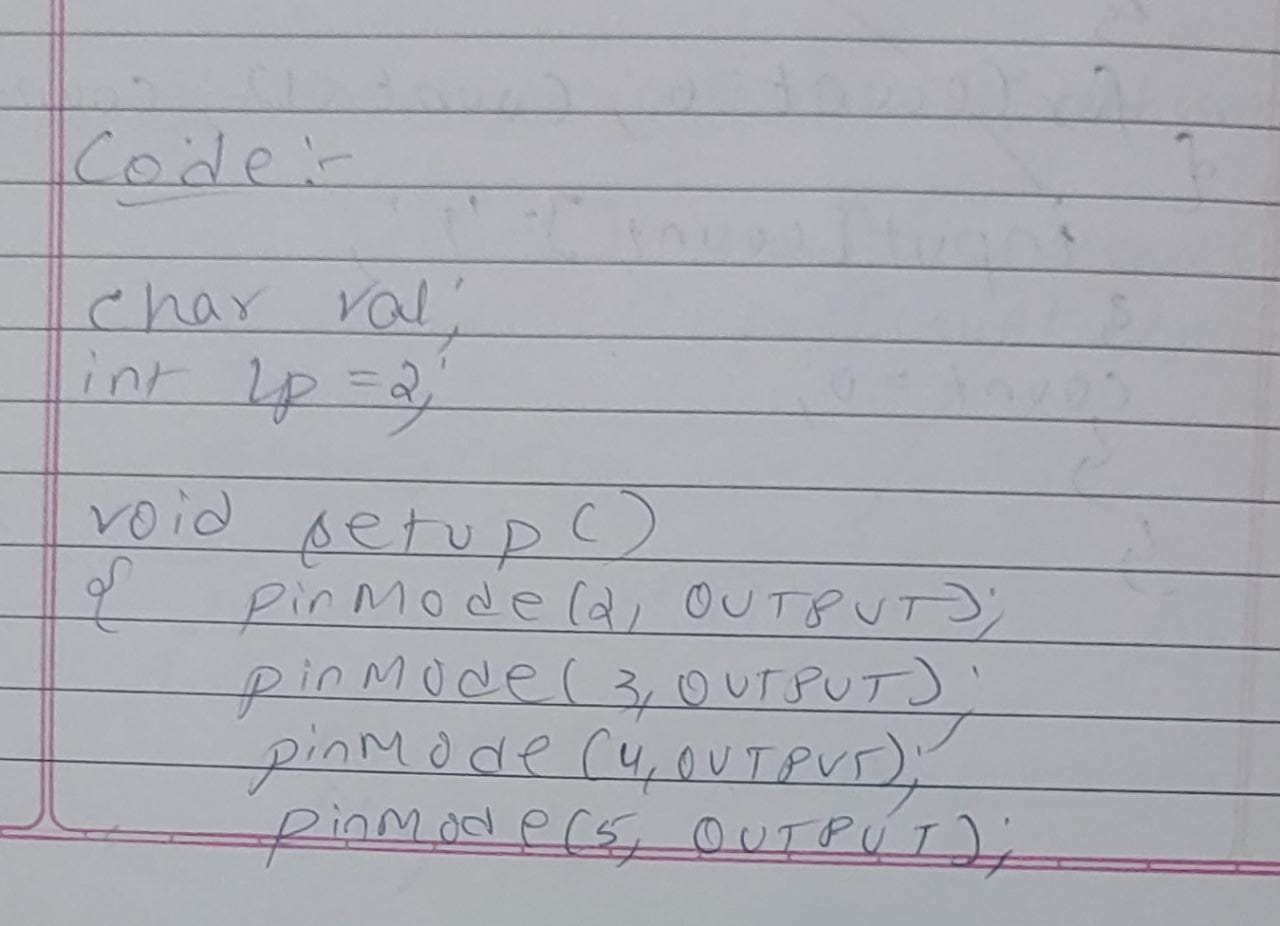 Code:-
char val;
int lp = 2;
void setup()
{ pinMode(2, OUTPUT);
pinMode(3, OUTPUT);
pinMode(4, OUTPUT);
pinMode(5, OUTPUT);